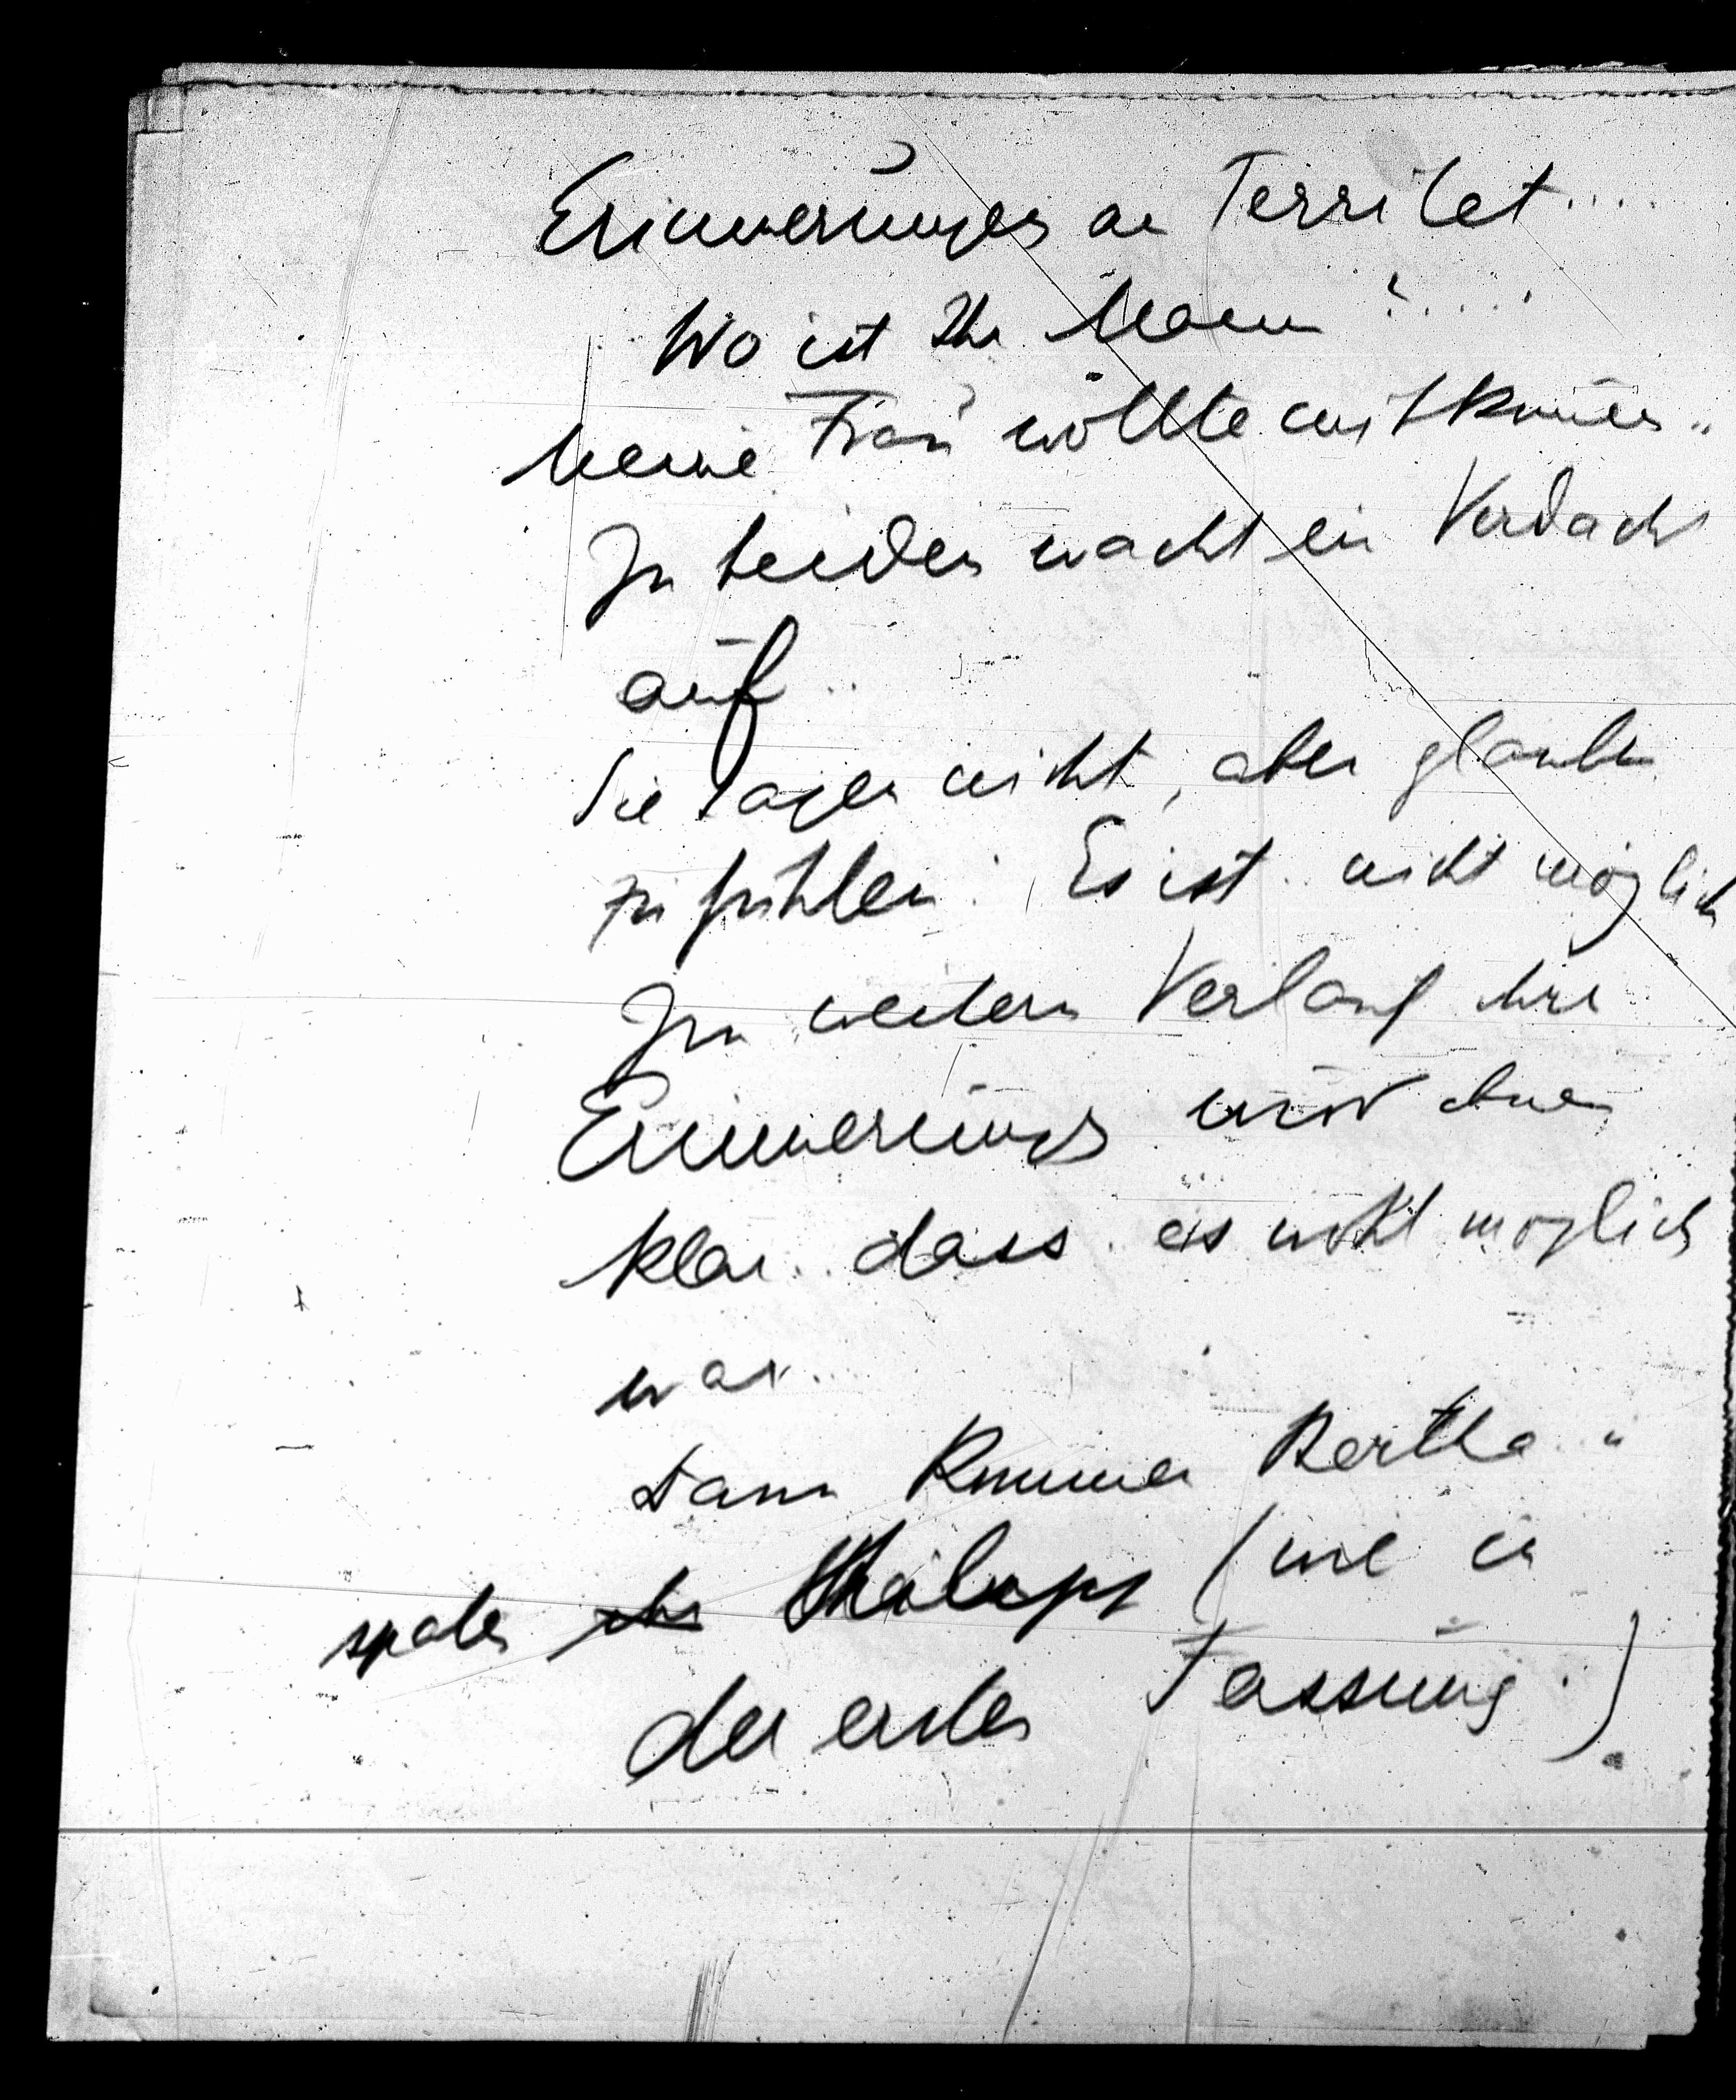 Erinnerungen an Territet....
Wo ist Ihr Mann?....
Meine Frau wollte mitkommen..
In beiden wacht ein Verdacht
auf..
Sie sagen nicht, aber glauben
zu fühlen: Es ist.. nicht möglich
Im weitern Verlauf ihrer
Erinnerungen wird ihnen
klar.. dass es nicht möglich
war...
Dann kommen Bertha..
später Philipp (wie in
der ersten Fassung.)